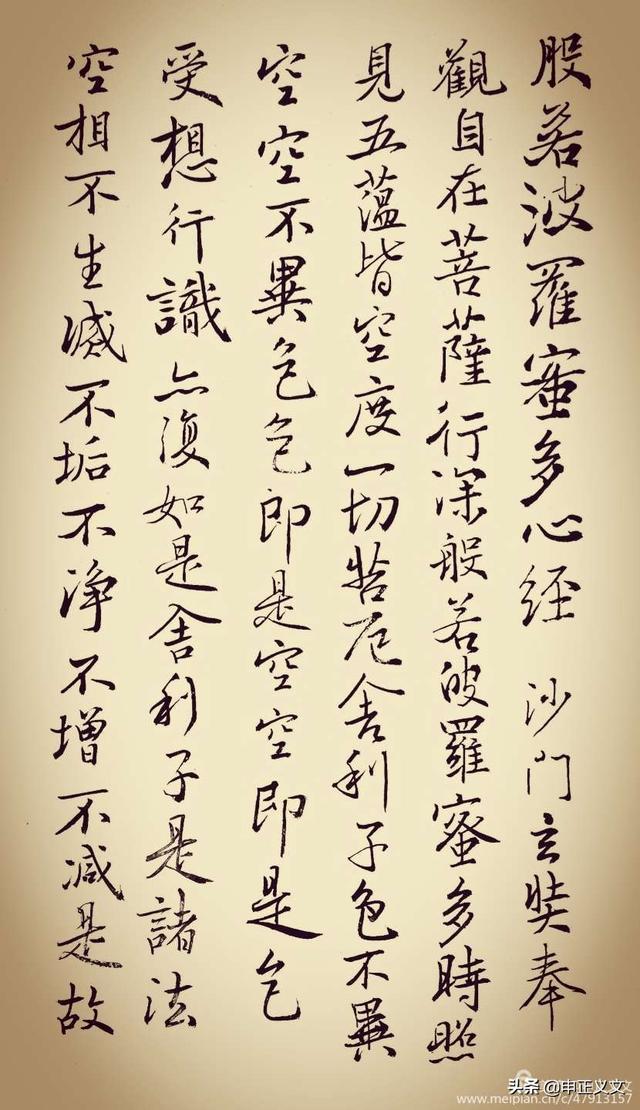 般若波羅蜜多心经 沙門玄奘奉
觀自在菩薩行深般若波羅蜜多時照
見五蕴皆空度一切苦厄舍利子色不異
空空不異色色即是空空即是色
受想行識亦復如是舍利子是諸法
空相不生滅不垢不净不增不减是故
头条 @申正义文
www.meipian.cn/c/47913157